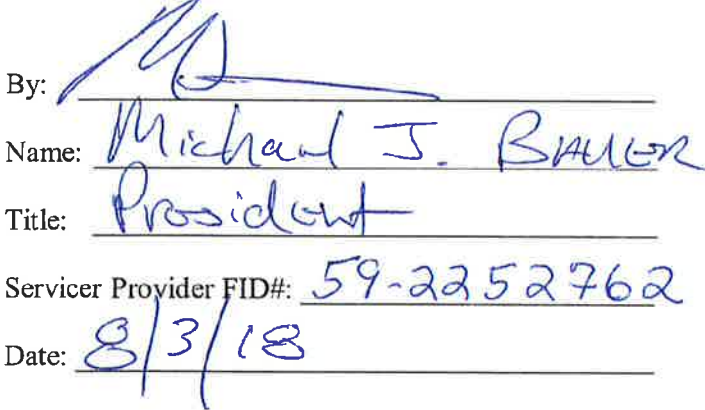 By:
Name: Michael J. BAUER
Title: President
Servicer Provider FID#: 59-2252762
Date: 8/3/18